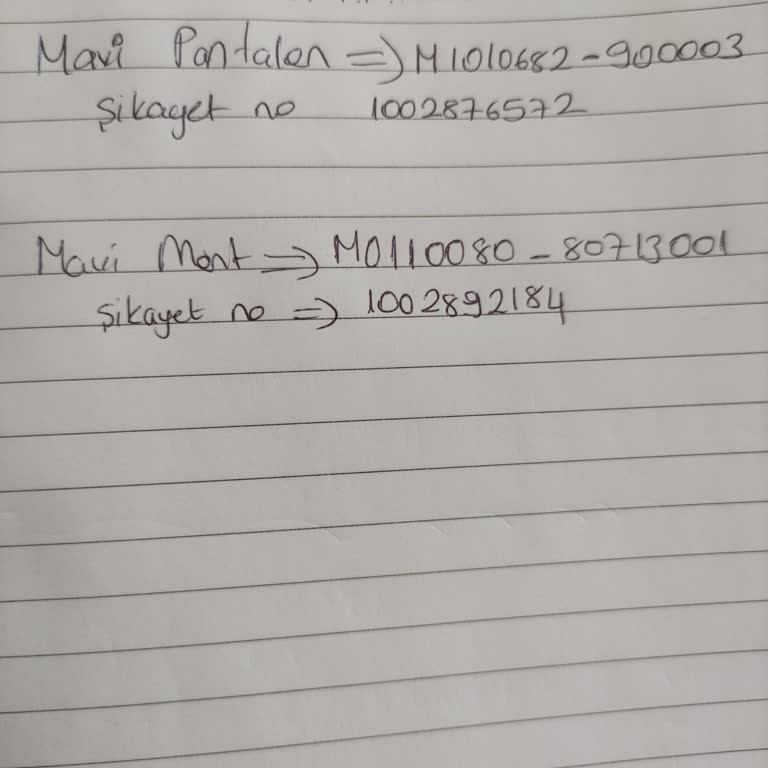 Mavi Pantalon => M1010682-900003
Şikayet no 1002876572
Mavi Mont => M0110080-80713001
Şikayet no => 1002892184